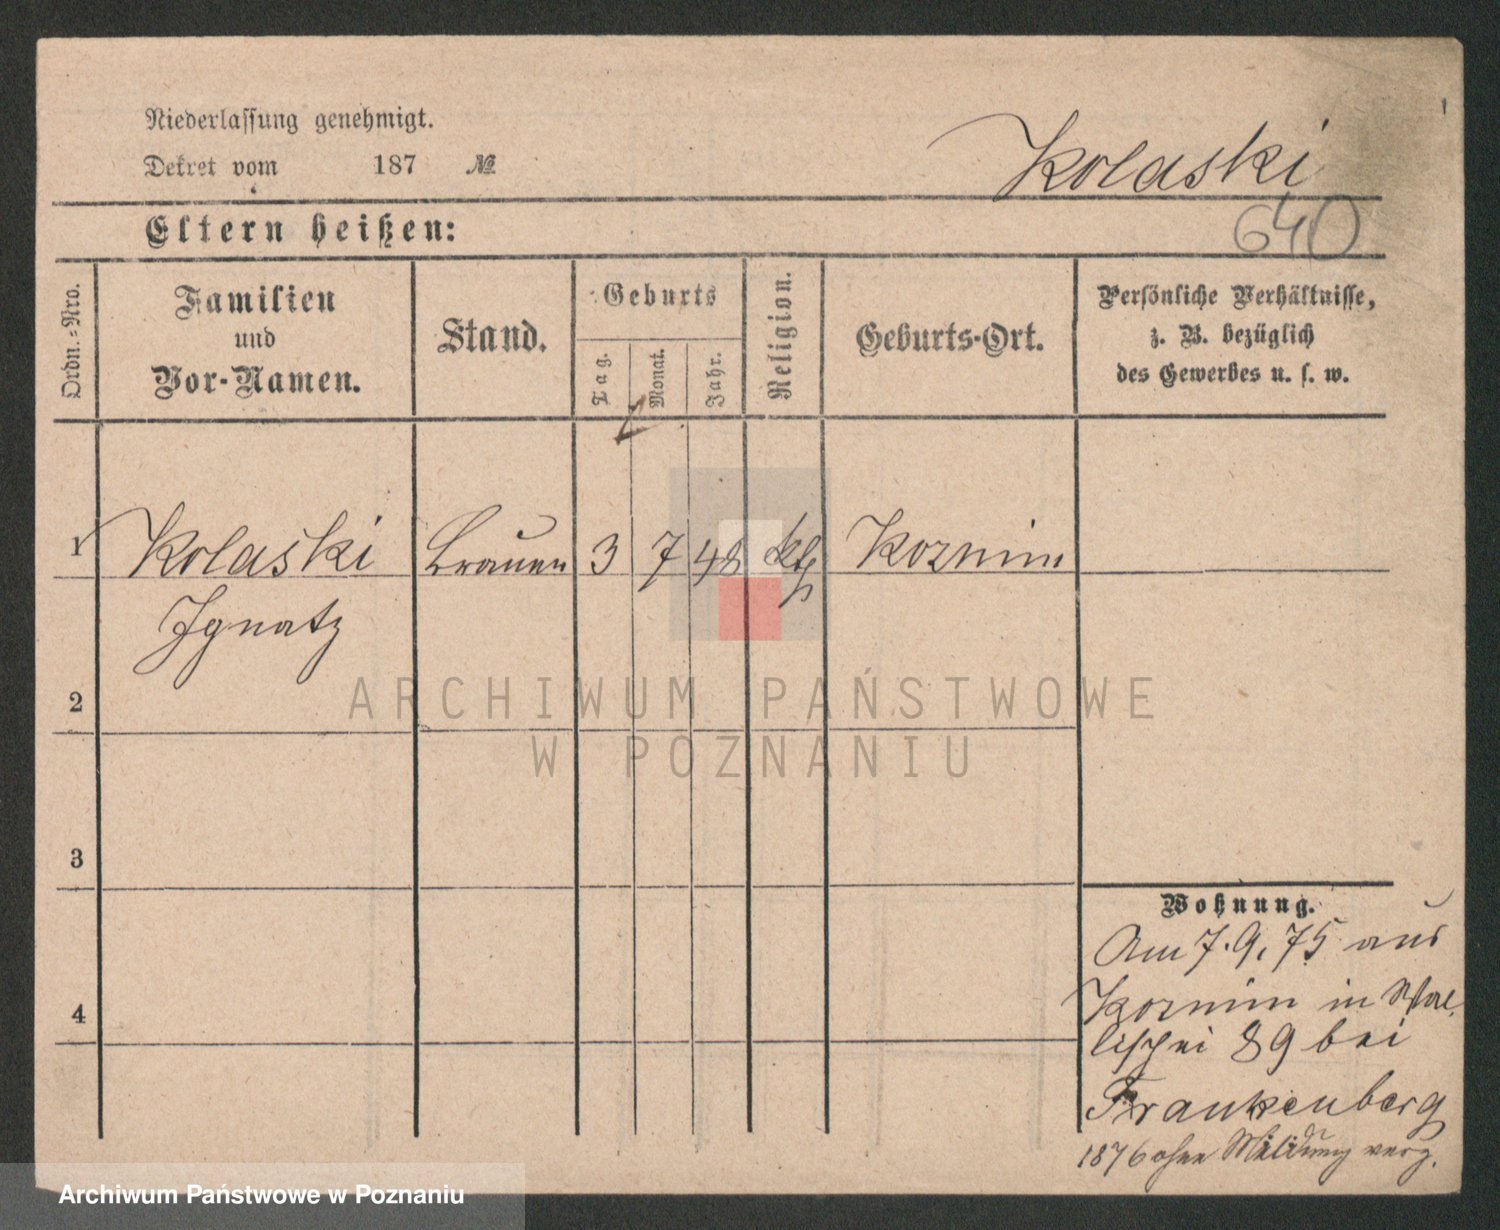 Niederlassung genehmigt.
Dekret vom 187 №
Kolaski
640
Eltern heißen:
Ordn.-Nro.
Familien
und
Vor-Namen.
Stand.
Geburts
Tag.
Monat.
Jahr.
Religion.
Geburts-Ort.
Persönliche Verhältnisse,
z. B. bezüglich
des Gewerbes u. s. w.
1 Kolaski Brauer 3 7 48 kth Kozmin
Ignatz
2
3
4
Wohnung.
Am 7. 9. 75 aus
Kozmin in Wal
lischei 89 bei
Frankenberg
1876 ohne Meldung verz.
ARCHIWUM PAŃSTWOWE
W POZNANIU
Archiwum Państwowe w Poznaniu